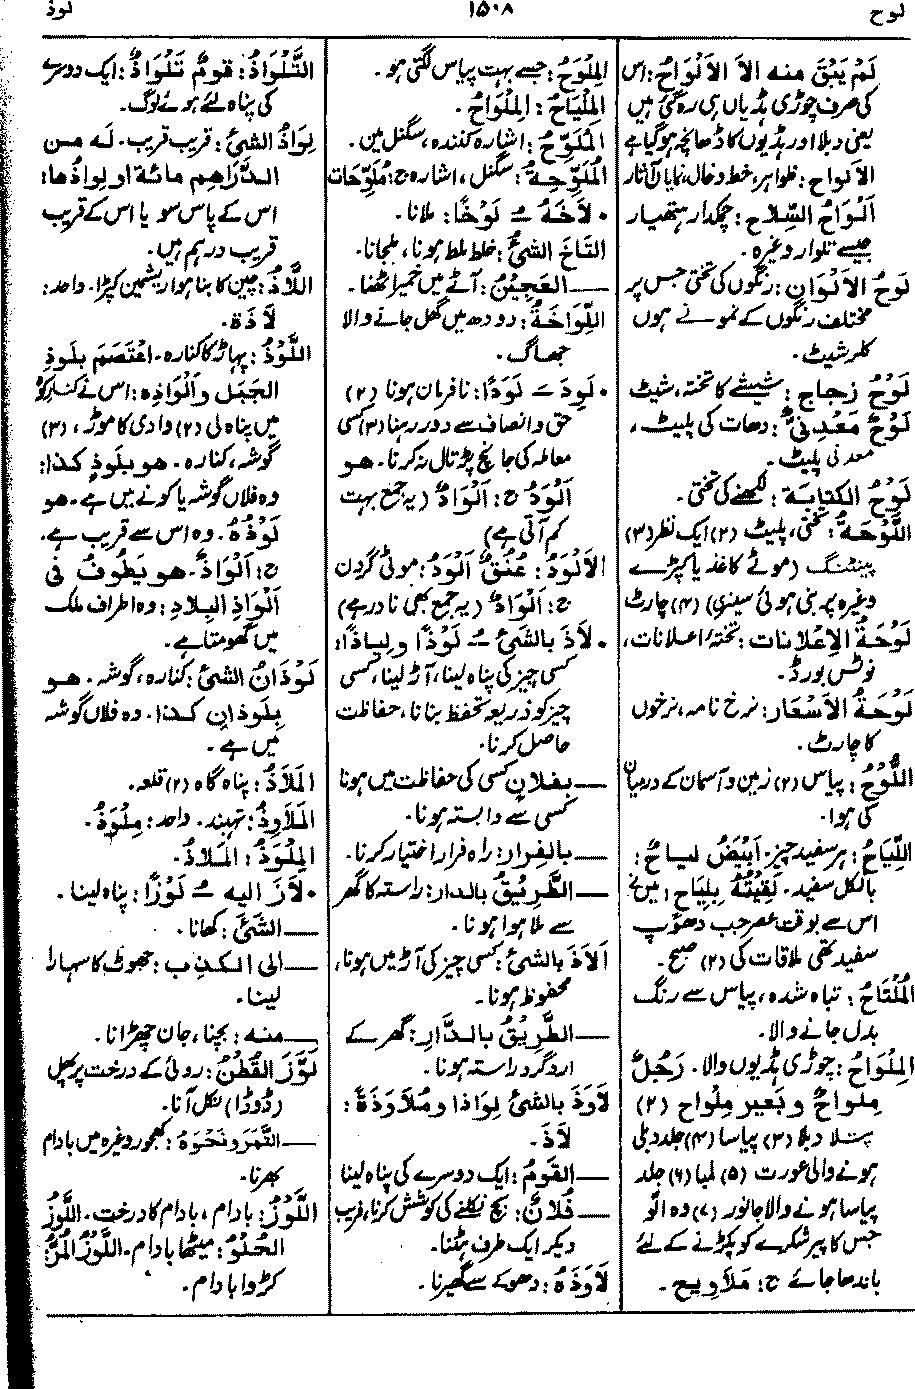 لوح
۱۵۰۸
لوذ
لَمْ يَبْقَ منه الاّ الاَلْوَاحُ: اس
کی صرف چوڑی ہڈیاں ہی رہ گئی ہیں
یعنی دبلا اور ہڈیوں کا ڈھانچہ ہوگیا ہے
الاَلواح: ظواہر، خط و خال، نمایاں آثار
اَلْوَاحُ السِّلاح: چمکدار ہتھیار
جیسے تلوار وغیرہ.
لَوحُ الاَلْوَان: رنگوں کی تختی جس پر
مختلف رنگوں کے نمونے ہوں
کلر شیٹ.
لَوْحُ زجاج: شیشے کا تختہ، شیٹ
لَوْحٌ مَعْدِنِیٌّ: دھات کی پلیٹ،
معدنی پلیٹ.
لَوْحُ الكتابَة: لکھنے کی تختی.
اللَّوْحَةُ: تختی، پلیٹ (۲) ایک نظر (۳)
پینٹنگ (موٹے کاغذ یا کپڑے
وغیرہ پر بنی ہوئی سینری) (۴) چارٹ
لَوْحَةُ الإعْلانات: تختۂ اعلانات،
نوٹس بورڈ.
لَوْحَةُ الاَسْعَار: نرخ نامہ، نرخوں
کا چارٹ.
اللُّوْحُ: پیاس (۲) زمین و آسمان کے درمیان
کی ہوا.
اللِّيَاحُ: ہر سفید چیز. اَبْيَضُ لياحٌ:
بالکل سفید. لَقِيْتُهٗ بِلِيَاح: میں نے
اس سے بوقت عصر جب دھوپ
سفید تھی ملاقات کی (۲) صبح.
المُلْتَاحُ: تباہ شدہ، پیاس سے رنگ
بدل جانے والا.
المِلْوَاحُ: چوڑی ہڈیوں والا. رَجُلٌ
مِلواحٌ و بَعير مِلواح (۲)
پتلا دبلا (۳) پیاسا (۴) جلد دبلی
ہونے والی عورت (۵) لمبا (۶) جلد
پیاسا ہونے والا جانور (۷) وہ الّو
جس کا پیر شکرے کو پکڑنے کے لئے
باندھا جائے ج: مَلاَوِيح.
المِلْوَحُ: جسے بہت پیاس لگتی ہو.
المِلْيَاحُ: المِلْوَاحُ.
المُلَوِّحُ: اشارہ کنندہ، سگنل مین.
المُلَوِّحَةُ: سگنل، اشارہ ج: مُلَوِّحَات
• لاَخَهُ ـُ لَوْخًا: ملانا.
التَاخَ الشیئُ: خلط ملط ہونا، ملجانا.
— العَجِيْنُ: آٹے میں خمیر اٹھنا.
اللِّوَاخَةُ: دودھ میں گھل جانے والا
جھاگ.
• لَوِدَ ـَ لَوَدًا: نافرمان ہونا (۲)
حق و انصاف سے دور رہنا (۳) کسی
معاملہ کی جانچ پڑتال نہ کرنا. هو
اَلْوَدُ ج: اَلْوَادٌ (یہ جمع بہت
کم آتی ہے)
الاَلْوَدُ: عُنُقٌ اَلْوَدُ: موٹی گردن
ج: اَلْوَادٌ (یہ جمع بھی نادر ہے)
• لاَذَ بالشیئ ـُ لَوْذًا و لِيَاذًا:
کسی چیز کی پناہ لینا، آڑ لینا، کسی
چیز کو ذریعہ تحفظ بنانا، حفاظت
حاصل کرنا.
— بفلانٍ کسی کی حفاظت میں ہونا
کسی سے وابستہ ہونا.
— بالفِرار: راہ فرار اختیار کرنا.
— الطَّرِيْقُ بالدار: راستہ کا گھر
سے ملا ہوا ہونا.
اَلاَذَ بالشیئ: کسی چیز کی آڑ میں ہونا،
محفوظ ہونا.
— الطَّرِيْقُ بالدَّارِ: گھر کے
ارد گرد راستہ ہونا.
لاَوَذَ بالشیئ لِوَاذا و مُلاَوَذَةً:
لاَذَ.
— القَومُ: ایک دوسرے کی پناہ لینا
— فُلانٌ: بچ نکلنے کی کوشش کرنا، فریب
دیکر ایک طرف ہٹنا.
لاَوَذَهُ: دھوکے سے گھیرنا.
التَّلْوَاذُ: قومٌ تَلْوَاذٌ: ایک دوسرے
کی پناہ لئے ہوئے لوگ.
لِوَاذُ الشیئ: قریب قریب. لَه من
الدَّرَاهِم مائة او لِواذُها:
اس کے پاس سو یا اس کے قریب
قریب درہم ہیں.
اللاَّذُ: چین کا بنا ہوا ریشمین کپڑا. واحد:
لاَذَة.
اللَّوْذُ: پہاڑ کا کنارہ. اعْتَصَمَ بِلَوذِ
الجَبَل و اَلْوَاذِه: اس نے کنارِ کوہ
میں پناہ لی (۲) وادی کا موڑ، (۳)
گوشہ، کنارہ. هو بِلَوذِ كذا:
وہ فلاں گوشہ یا کونے میں ہے. هو
لَوْذُهُ. وہ اس سے قریب ہے.
ج: اَلْوَاذٌ. هو يَطُوفُ في
اَلْوَاذِ البِلادِ: وہ اطراف ملک
میں گھومتا ہے.
لَوْذَانُ الشیئ: کنارہ، گوشہ. هو
بِلَوذانِ كذا. وہ فلاں گوشہ
میں ہے.
المَلاَذُ: پناہ گاہ (۲) قلعہ.
المَلاَوِذُ: تہبند. واحد: مِلْوَذٌ.
المِلْوَذُ: المَلاذُ.
• لاَزَ اليه ـُ لَوْزًا: پناہ لینا.
— الشَّیئَ: کھانا.
— الی الكذب: جھوٹ کا سہارا
لینا.
— منه: بچنا، جان چھڑانا.
لَوَّزَ القُطْنُ: روئی کے درخت پر پھل
(ڈوڈا) نکل آنا.
— التَّمَرَ و نَحْوَهُ: کھجور وغیرہ میں بادام
بھرنا.
اللَّوْزُ: بادام، بادام کا درخت. اللَّوْزُ
الحُلْوُ: میٹھا بادام. اللَّوْزُ المُرُّ
کڑوا بادام.